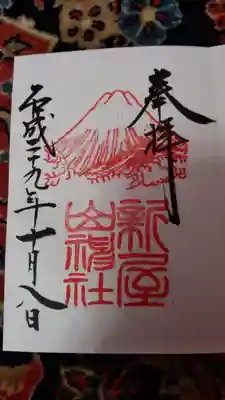 奉拝
新屋
山神社
平成二十九年十月八日